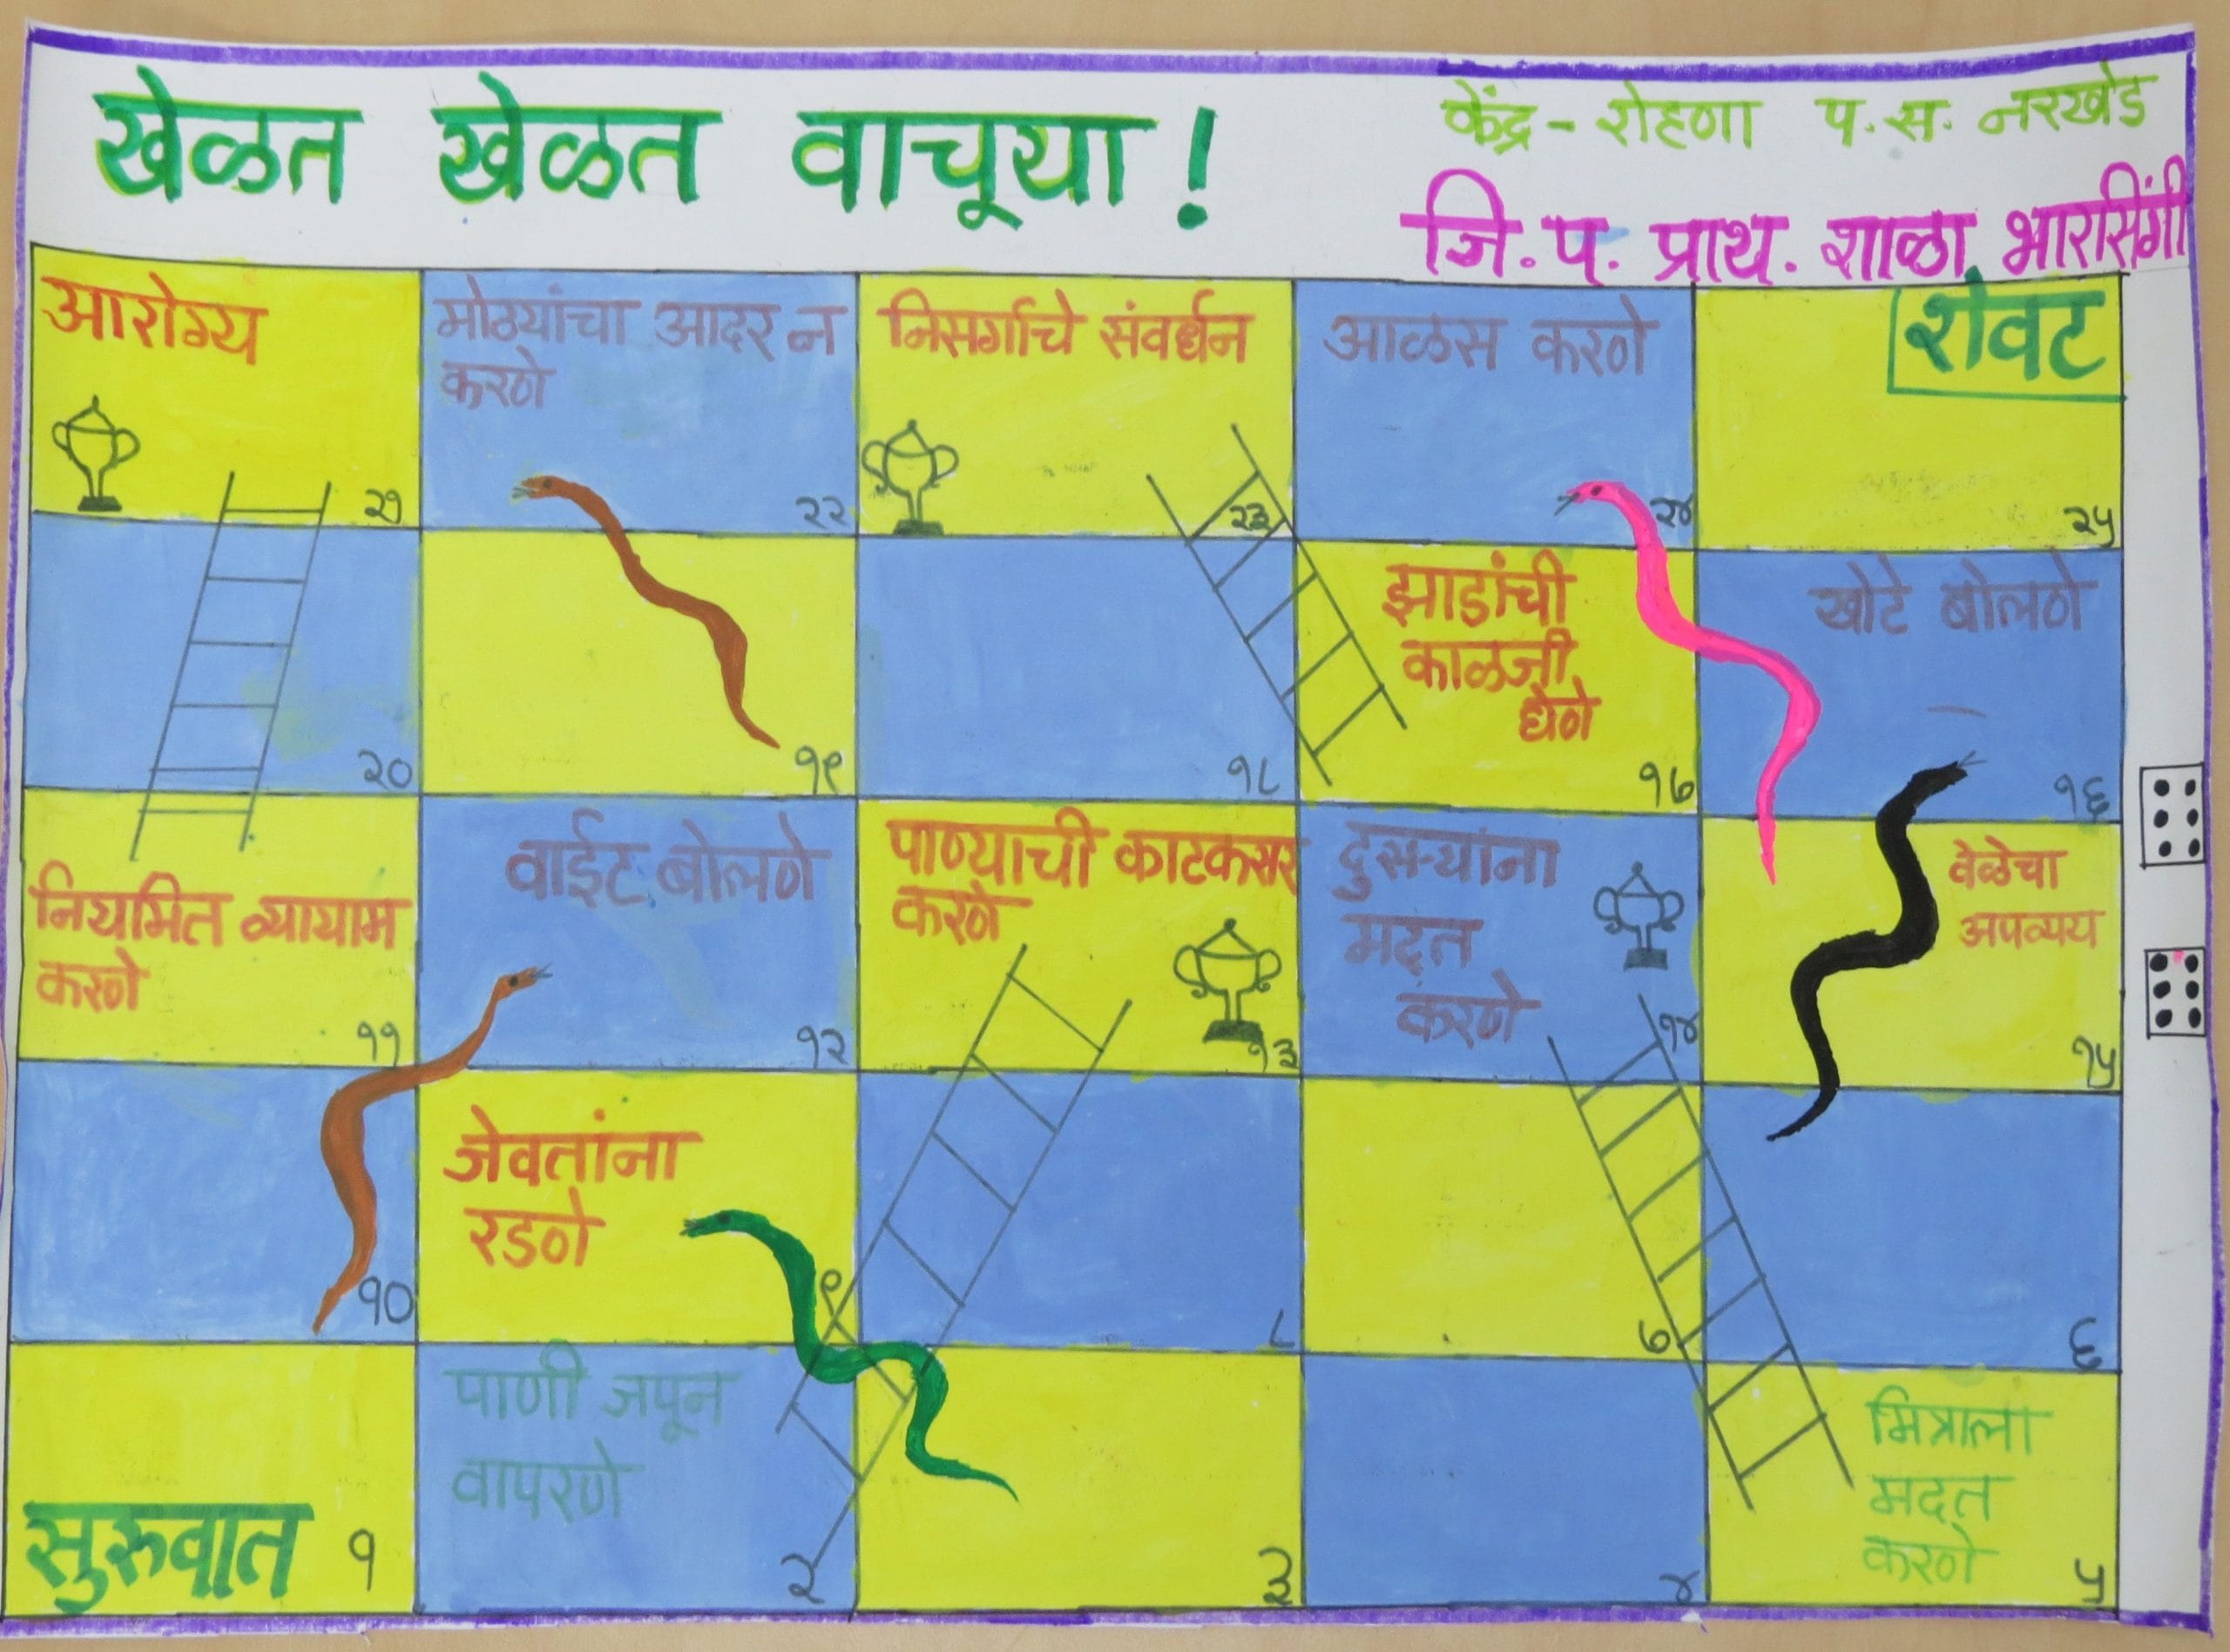 खेळत खेळत वाचूया!
केंद्र - रोहणा प. स. नरखेड
जि. प. प्राथ. शाळा भारसिंगी
आरोग्य
२१
मोठ्यांचा आदर न
करणे
२२
निसर्गाचे संवर्धन
२३
आळस करणे
२४
शेवट
२५
२०
१९
१८
झाडांची
काळजी
घेणे
१७
खोटे बोलणे
१६
नियमित व्यायाम
करणे
११
वाईट बोलणे
१२
पाण्याची काटकसर
करणे
१३
दुसऱ्यांना
मदत
करणे
१४
वेळेचा
अपव्यय
१५
१०
जेवतांना
रडणे
९
८
७
६
सुरुवात १
पाणी जपून
वापरणे
२
३
४
मित्राला
मदत
करणे
५